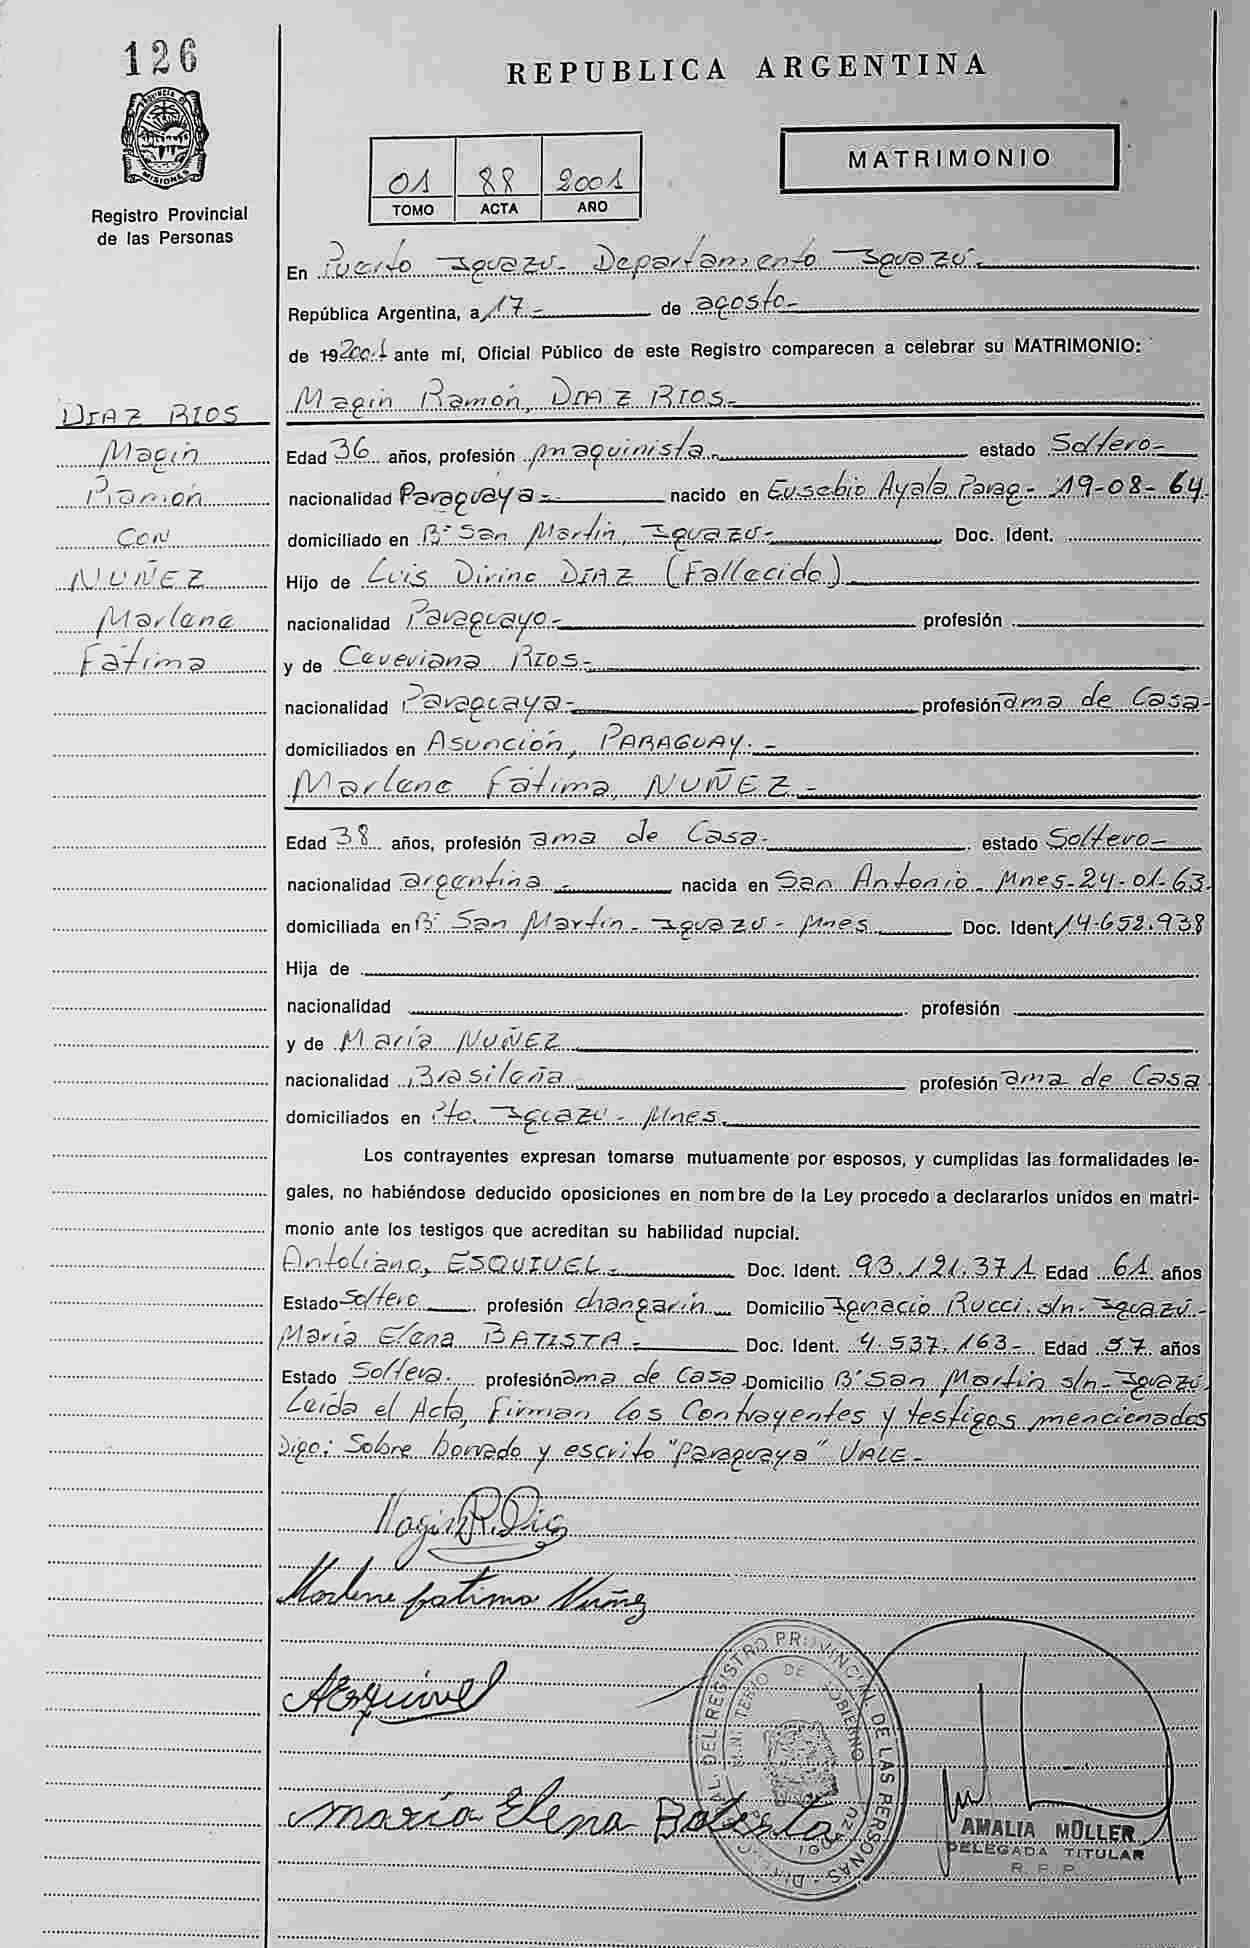 126
REPUBLICA ARGENTINA
MISIONES
Registro Provincial
de las Personas
MATRIMONIO
01 88 2001
TOMO ACTA AÑO
En Puerto Iguazú - Departamento Iguazú.-
República Argentina, a 17 - de agosto -
de 192001 ante mí, Oficial Público de este Registro comparecen a celebrar su MATRIMONIO:
Magin Ramón, DIAZ RIOS.-
DIAZ RIOS
Magin
Ramón
CON
NUÑEZ
Marlene
Fátima
Edad 36 años, profesión maquinista.- estado Soltero-
nacionalidad Paraguaya.- nacido en Eusebio Ayala, Parag- 19-08-64.
domiciliado en Bº San Martin, Iguazú.- Doc. Ident.
Hijo de Luis Dirino DIAZ (Fallecido)
nacionalidad Paraguayo.- profesión
y de Ceveriana RIOS.-
nacionalidad Paraguaya.- profesión ama de Casa-
domiciliados en Asunción, PARAGUAY. -
Marlene Fátima, NUÑEZ -
Edad 38 años, profesión ama de Casa- estado Soltero-
nacionalidad argentina.- nacida en San Antonio - Mnes-24-01-63.
domiciliada en Bº San Martin - Iguazú - Mnes Doc. Ident. 14.652.938
Hija de
nacionalidad profesión
y de María NUÑEZ
nacionalidad Brasileña profesión ama de Casa
domiciliados en Pto. Iguazú - Mnes.
Los contrayentes expresan tomarse mutuamente por esposos, y cumplidas las formalidades le-
gales, no habiéndose deducido oposiciones en nombre de la Ley procedo a declararlos unidos en matri-
monio ante los testigos que acreditan su habilidad nupcial.
Antoliano, ESQUIVEL.- Doc. Ident. 93.121.371 Edad 61 años
Estado Soltero profesión changarín Domicilio Ignacio Rucci s/n- Iguazú-
María Elena BATISTA - Doc. Ident. 4.537.163- Edad 57 años
Estado Soltera. profesión ama de Casa Domicilio Bº San Martin s/n- Iguazú.
Leída el Acta, Firman los Contrayentes y testigos mencionados
Digo: Sobre borrado y escrito "Paraguaya" VALE-
Magin R. Diaz
Marlene fatima Nuñez
AEsquivel
maría Elena Batista
REGISTRO PROVINCIAL DE LAS PERSONAS
MINISTERIO DE GOBIERNO
IGUAZU
AMALIA MÜLLER
DELEGADA TITULAR
R. P. P.